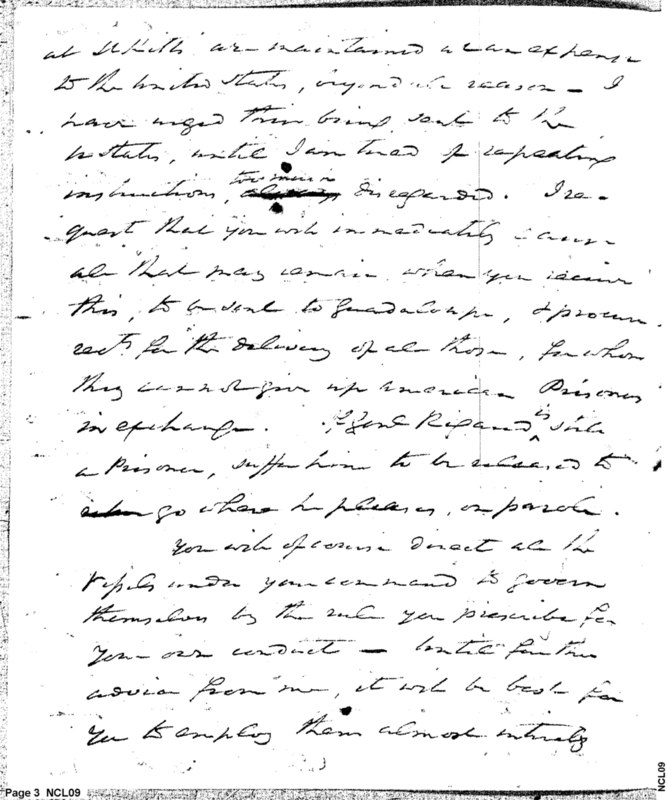 at St Kitts are maintained at an expense
to the United States, beyond all reason – I
have urged their being sent to the
U States, until I am tired of repeating
instructions, too much always disregarded. I re-
quest that you will immediately cause
all that may remain when you receive
this, to be sent to Guadaloupe, & procure
rects for the delivery of all those, for whom
they cannot give up American Prisoners
in exchange. If Genl Rigaud is still
a Prisoner, suffer him to be released to
go where he pleases, on parole.
You will of course direct all the
Vessels under your command to govern
themselves by the rule you prescribe for
your own conduct – Until further
advice from me, it will be best for
you to employ them almost entirely
Page 3 NCL09
NCL09